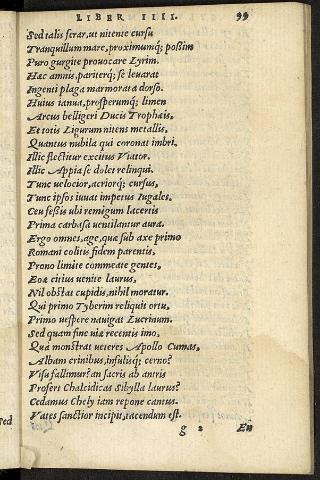 LIBER IIII. 99
Sed talis ferar, ut nitente cursu
Tranquillum mare, proximumq́; possim
Puro gurgite provocare Lyrim.
Hæc amnis, pariterq́; se levarat
Ingenti plaga marmorata dorso.
Huius ianua, prosperumq́; limen
Arcus belligeri Ducis Trophæis,
Et totis Ligurum nitens metallis,
Quantus nubila qui coronat imbri.
Illic flectitur excitus Viator.
Illic Appia se dolet relinqui.
Tunc uelocior, acriorq́; cursus,
Tunc ipsos iuuat impetus Iugales.
Ceu fessis ubi remigum lacertis
Prima carbasa uentilantur auræ.
Ergo omnes, age, quæ sub axe primo
Romani colitis fidem parentis,
Prono limite commeate gentes,
Eoæ citius uenite laurus,
Nil obstat cupidis, nihil moratur.
Qui primo Tyberim reliquit ortu,
Primo uespere nauigat Lucrinum.
Sed quam fine uiæ recentis imo,
Qua monstrat ueteres Apollo Cumas,
Albam crinibus, infulisq́; cerno?
Visu fallimur? an sacris ab antris
Profert Chalcidicas Sibylla laurus?
Cedamus Chely iam repone cantus.
Vates sanctior incipit, tacendum est.
g 2 En